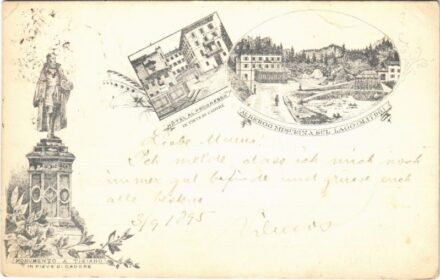 HÔTEL AL PROGRESSO
IN PIEVE DI CADORE
ALBERGO MISURINA SUL LAGO
Liebe Mama!
Ich melde dass ich mich noch
immer gut befinde und grüsse euch
alle bestens
3/9 1895
MONUMENTO A TIZIANO
IN PIEVE DI CADORE